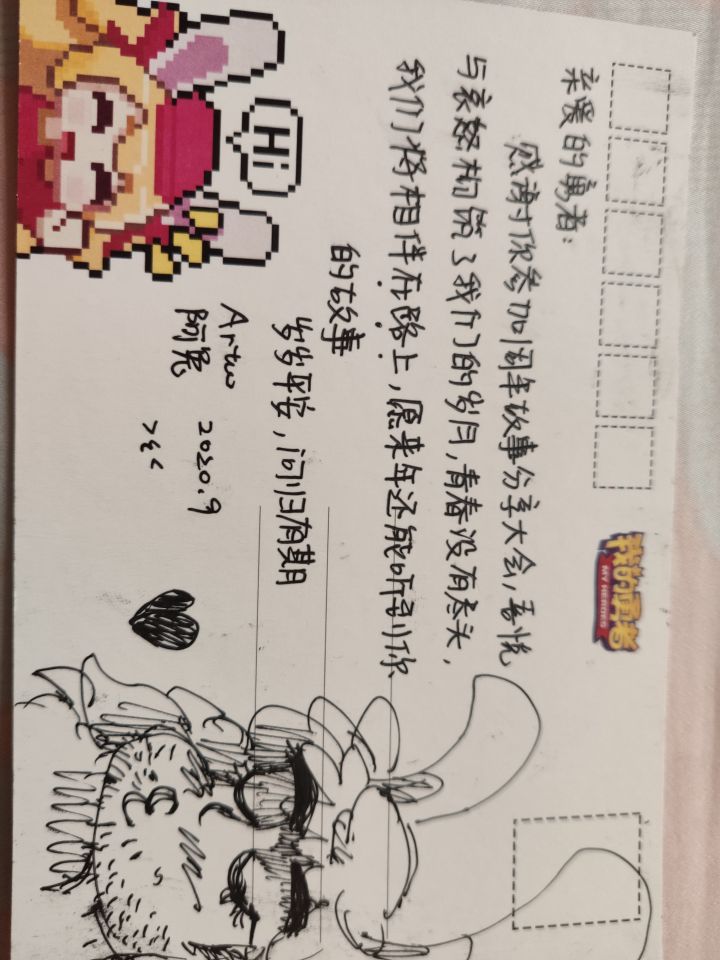 亲爱的勇者：
感谢你参加1周年故事分享大会，喜悦
与哀怒构筑了我们的岁月，青春没有尽头，
我们将相伴在路上，愿来年还能听到你
的故事
岁岁平安，问归有期
Artwo
2020.9
>3<
Hi!
我的勇者
MY HEROES